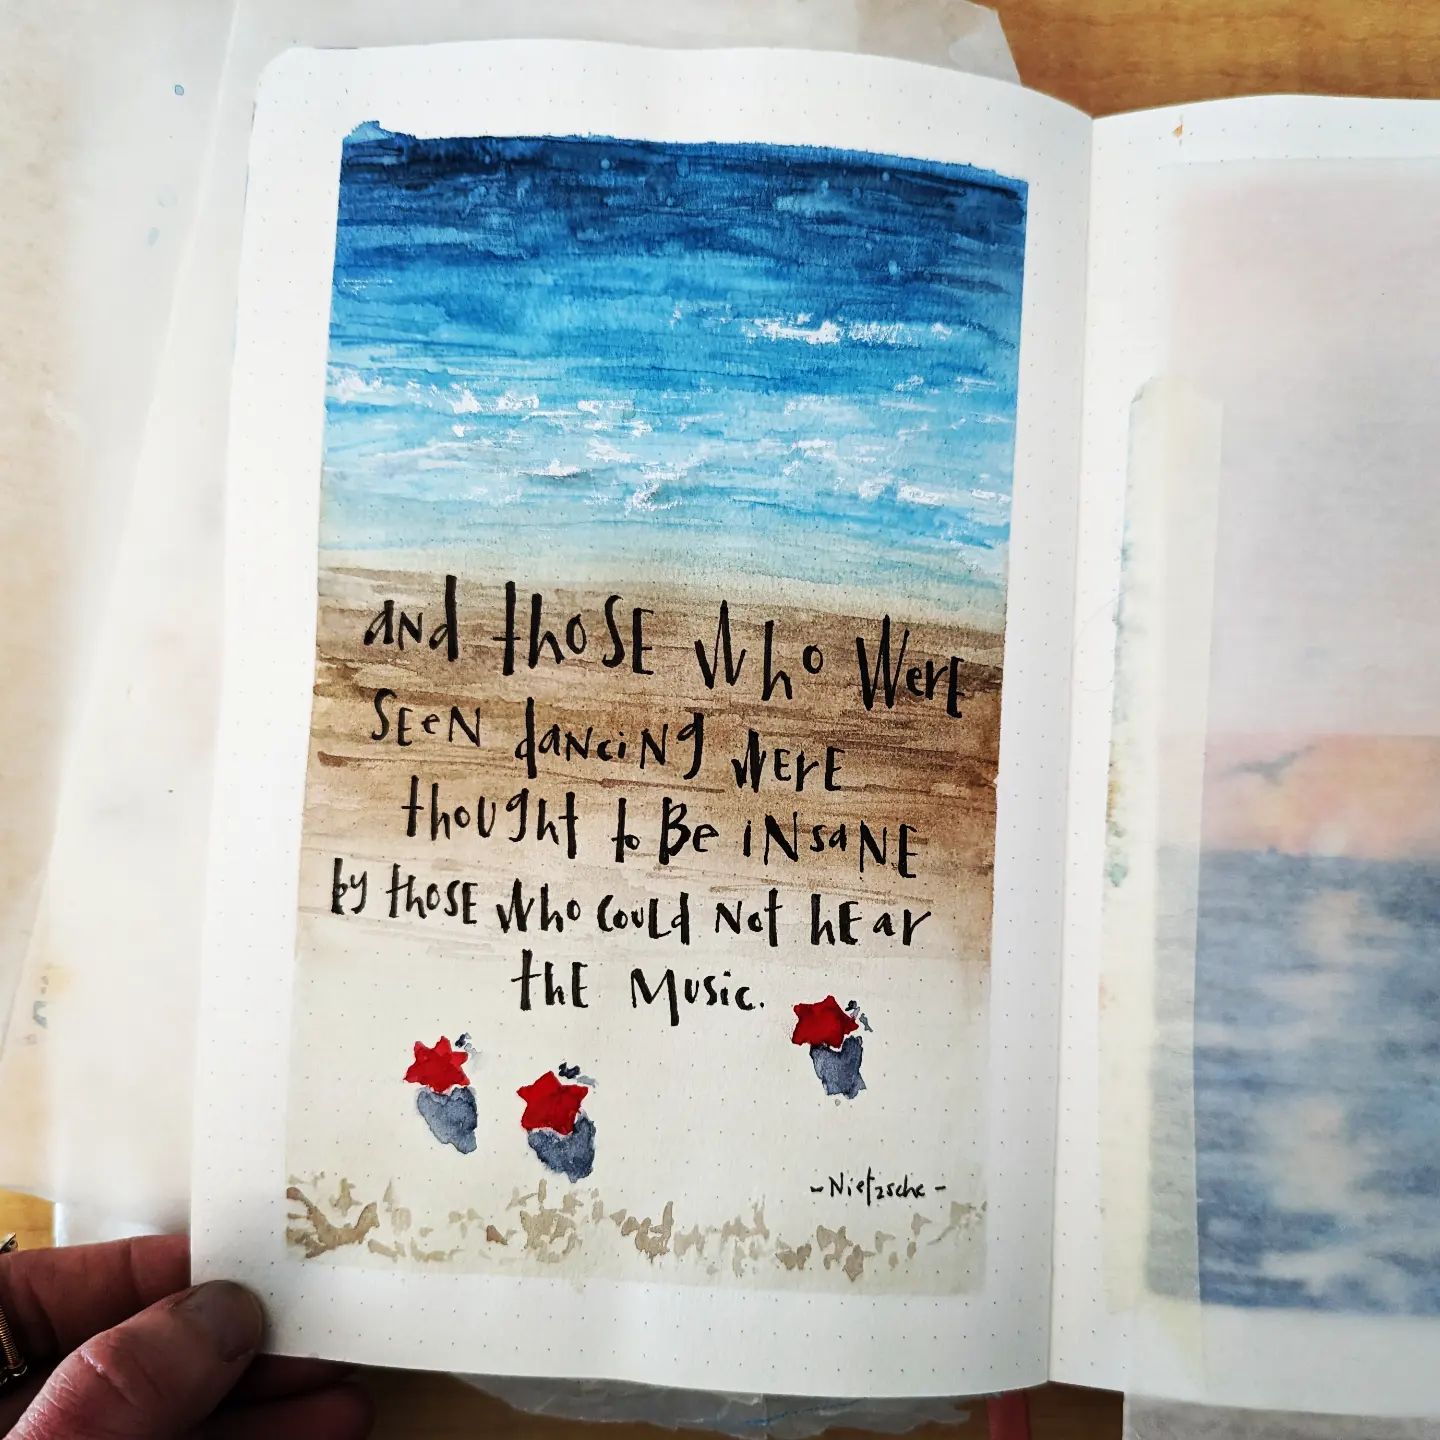 and those who were
seen dancing were
thought to be insane
by those who could not hear
the music.
-Nietzsche-